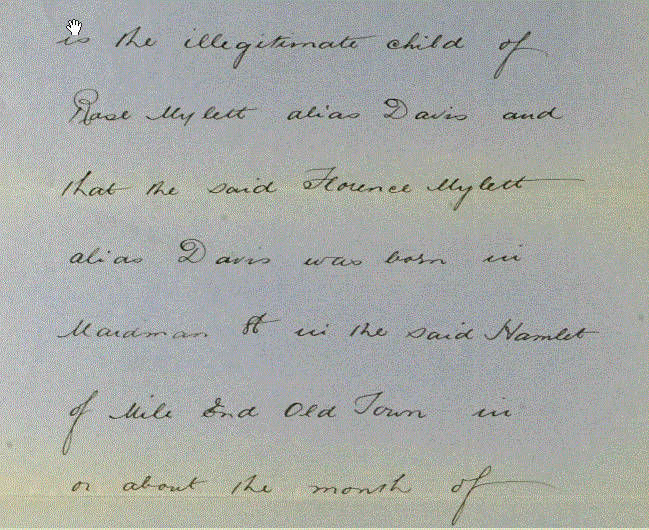 is the illegitimate child of
Rose Mylett alias Davis and
that the said Florence Mylett
alias Davis was born in
Maidman St in the said Hamlet
of Mile End Old Town in
or about the month of